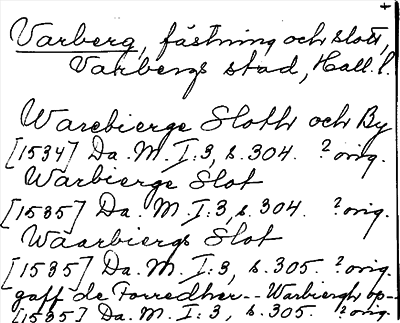 Varberg, fästning och slott,
Varbergs stad, Hall. l.
Warebierge Sloth och By
[1534] Da. M. I. 3, s. 304. ? orig.
Warbierge Slot
[1535] Da. M. I. 3, s. 304. ? orig.
Waarbiergs Slot
[1535] Da. M. I. 3, s. 305. ? orig.
gaff de Forredher-- Warbiergh op--
[1535] Da. M. I. 3, s. 305. ? orig.